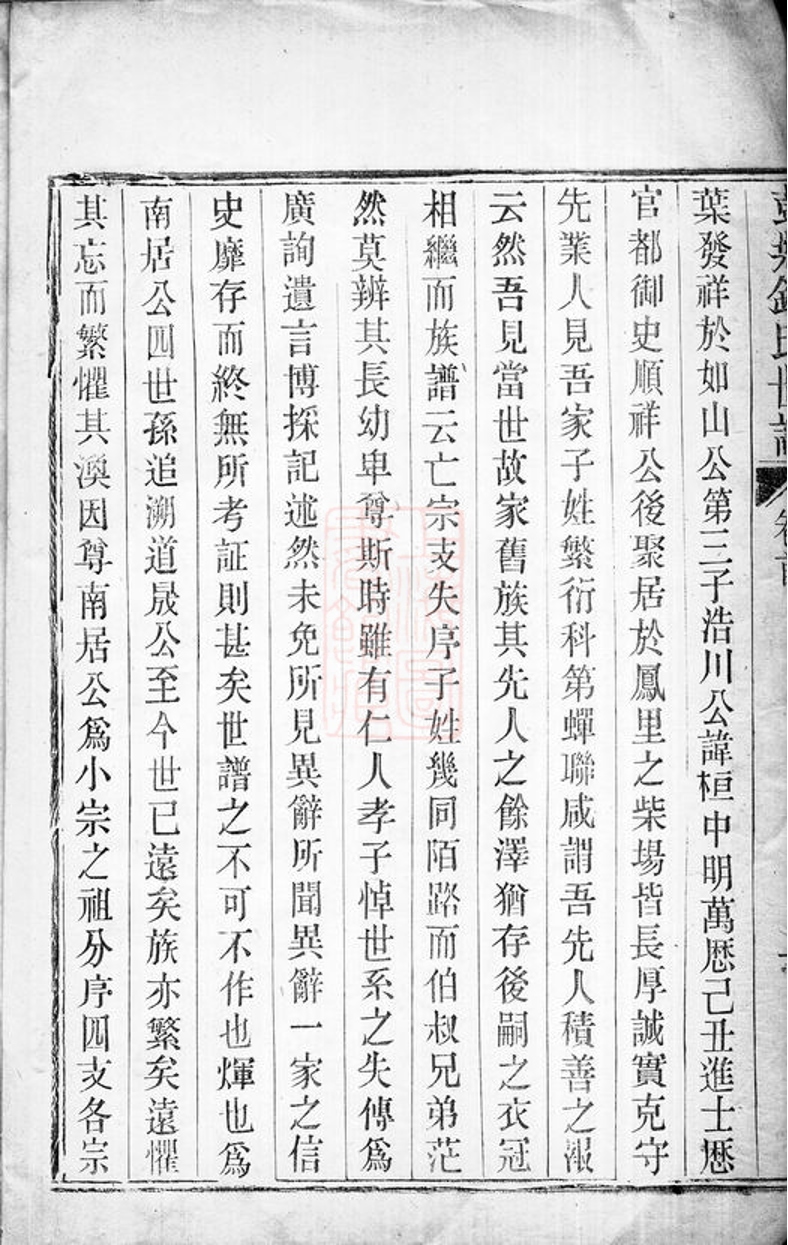 氏世譜 卷首
葉發祥於如山公第三子浩川公諱桓中明萬厯己丑進士厯
官都御史順祥公後聚居於鳳里之柴場皆長厚誠實克守
先業人見吾家子姓繁衍科第蟬聯咸謂吾先人積善之報
云然吾見當世故家舊族其先人之餘澤猶存後嗣之衣冠
相繼而族譜云亡宗支失序子姓幾同陌路而伯叔兄弟茫
然莫辨其長幼卑尊斯時雖有仁人孝子悼世系之失傳爲
廣詢遺言博採記述然未免所見異辭所聞異辭一家之信
史靡存而終無所考証則甚矣世譜之不可不作也煇也爲
南居公四世孫追溯道晟公至今世已遠矣族亦繁矣遠懼
其忘而繁懼其渙因尊南居公爲小宗之祖分序四支各宗